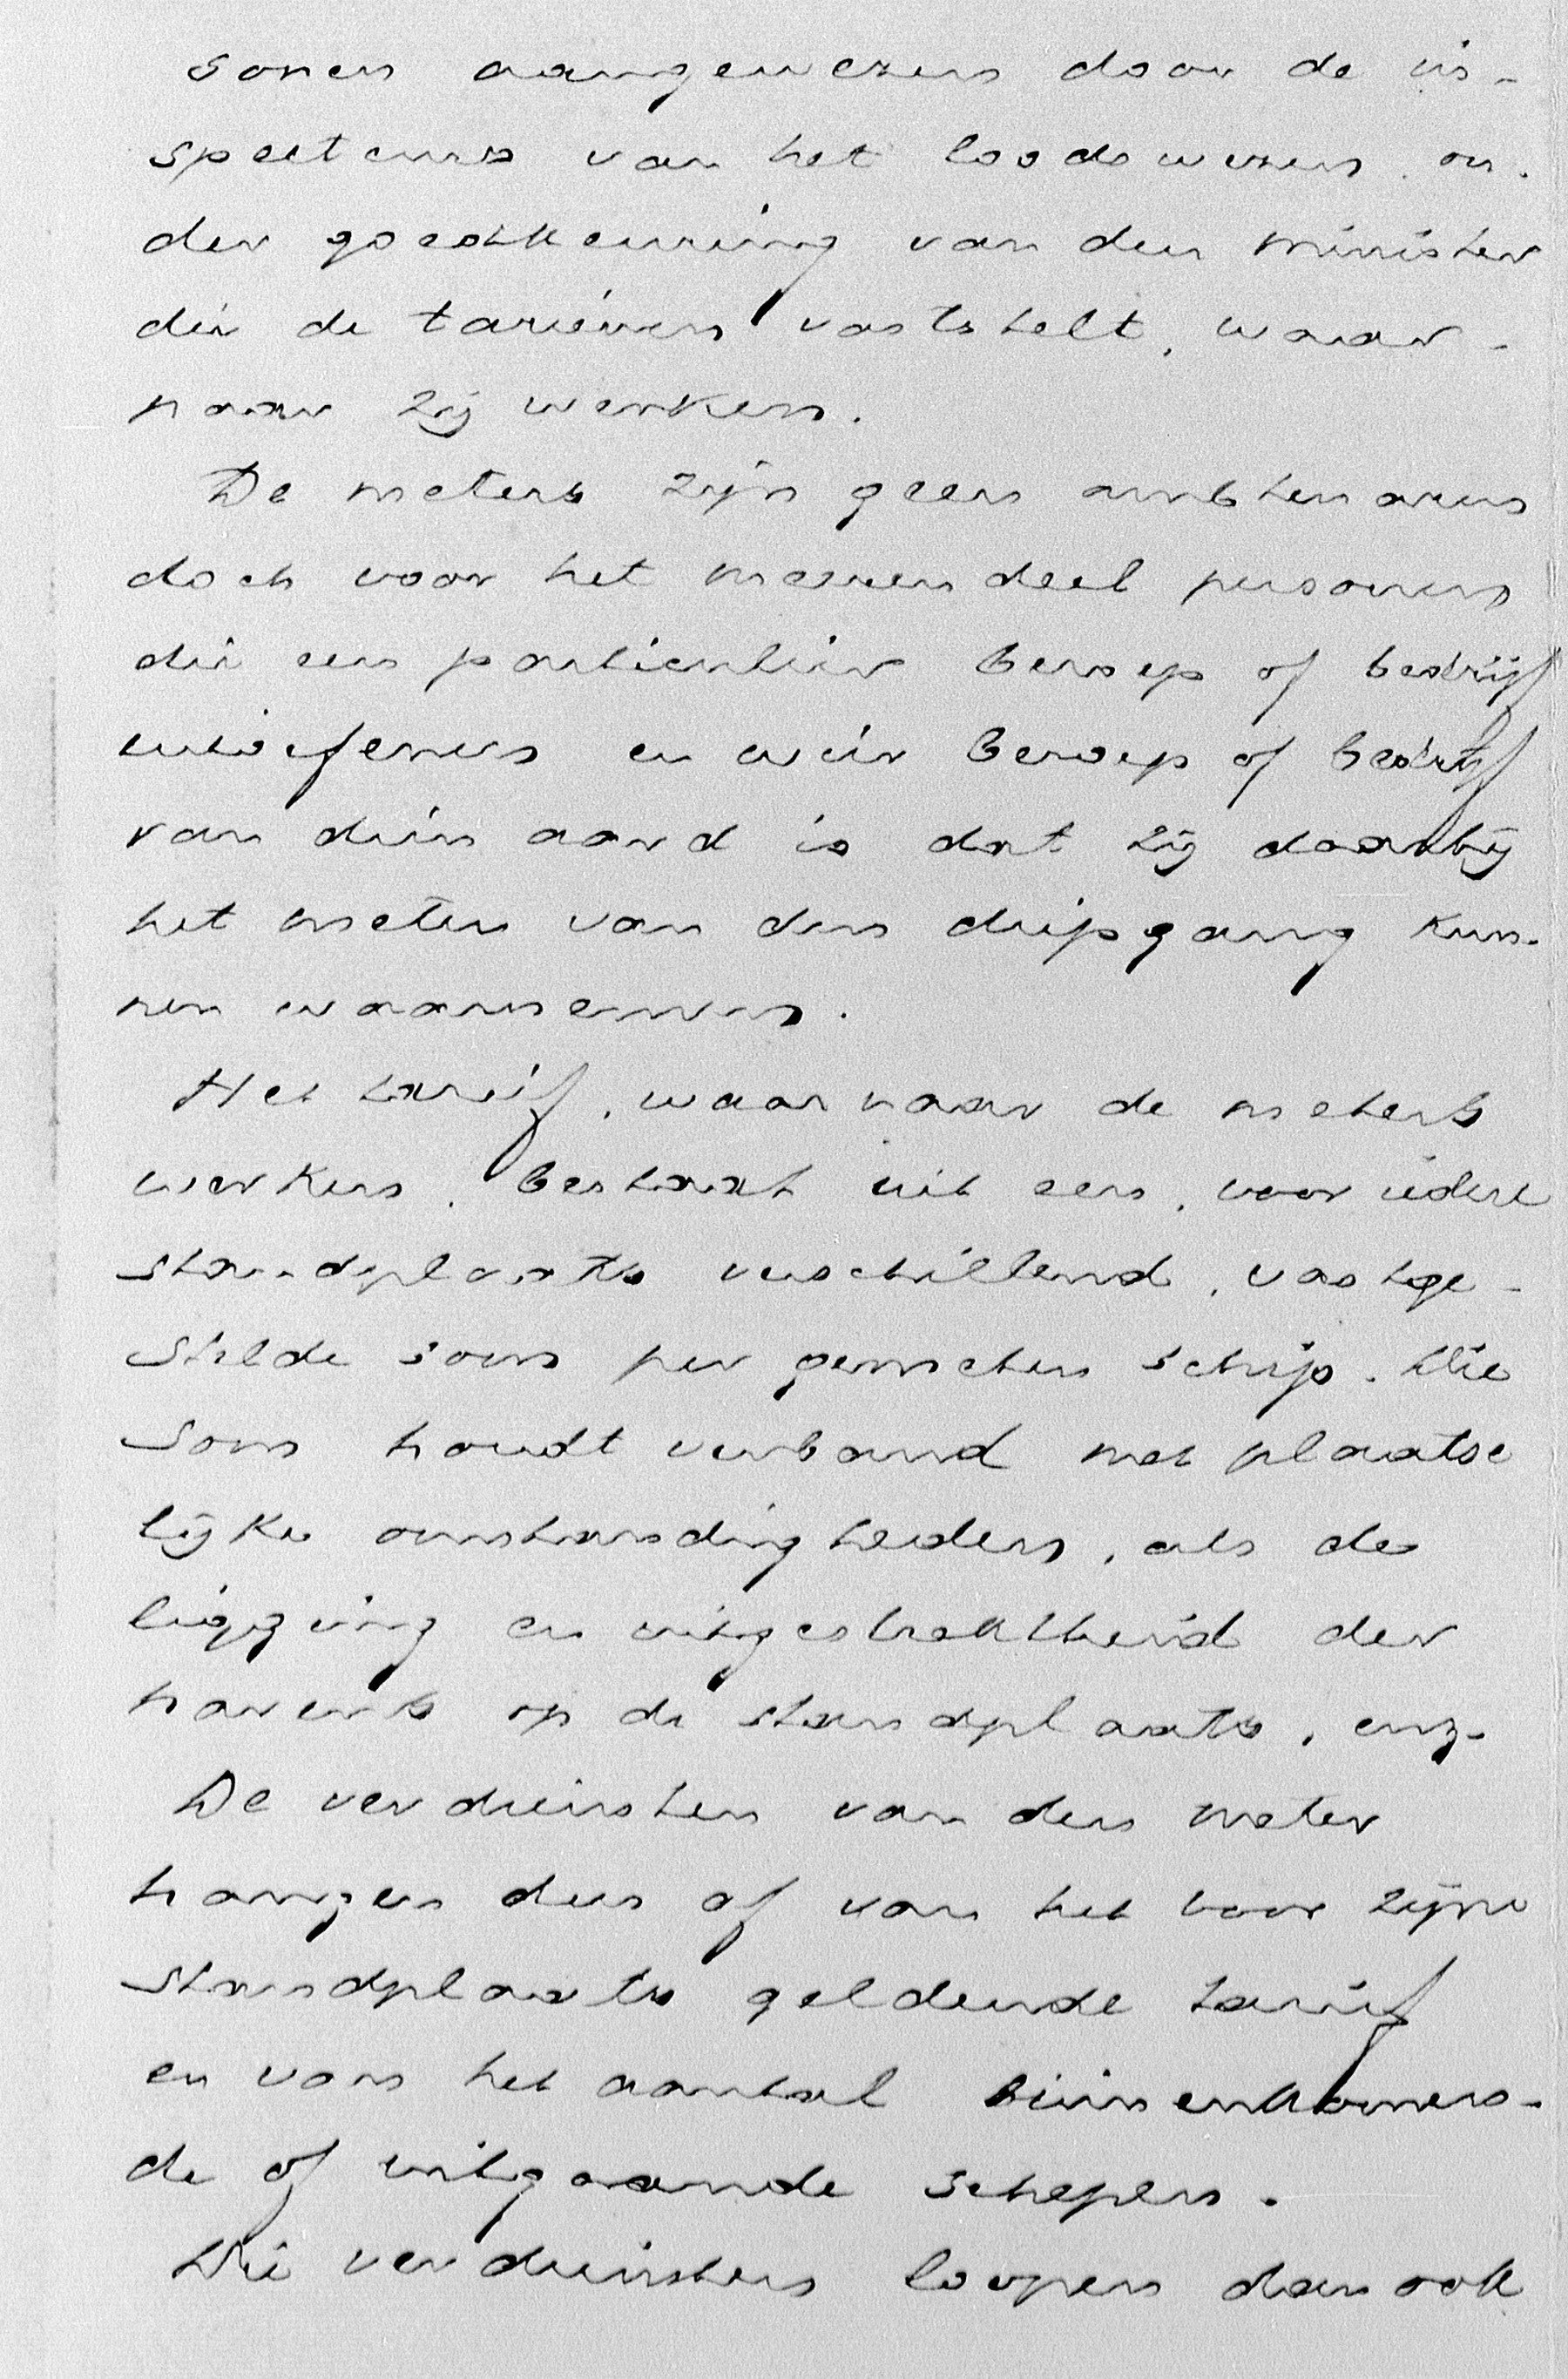 sonen aangewezen door de in-
specteurs van het loodswezen, on-
der goedkeuring van den Minister
die de tarieven vaststelt, waar-
naar zij werken.
De meters zijn geen ambtenaren
doch voor het meerendeel personen
die een particulier beroep of bedrijf
uitoefenen en wier beroep of bedrijf
van dien aard is dat zij daarbij
het meten van den diepgang kun-
nen waarnemen.
Het tarief, waarnaar de meters
werken, bestaat uit een, voor iedere
standplaats verschillend, vastge-
stelde som per gemeten schip. Die
som houdt verband met plaatse
lijke omstandigheden, als de
ligging en uitgestrektheid der
havens op de standplaats, enz.
De verdiensten van den meter
hangen dus af van het voor zijne
standplaats geldende tarief
en van het aantal binnenkomen-
de of uitgaande schepen.
Die verdiensten loopen dan ook